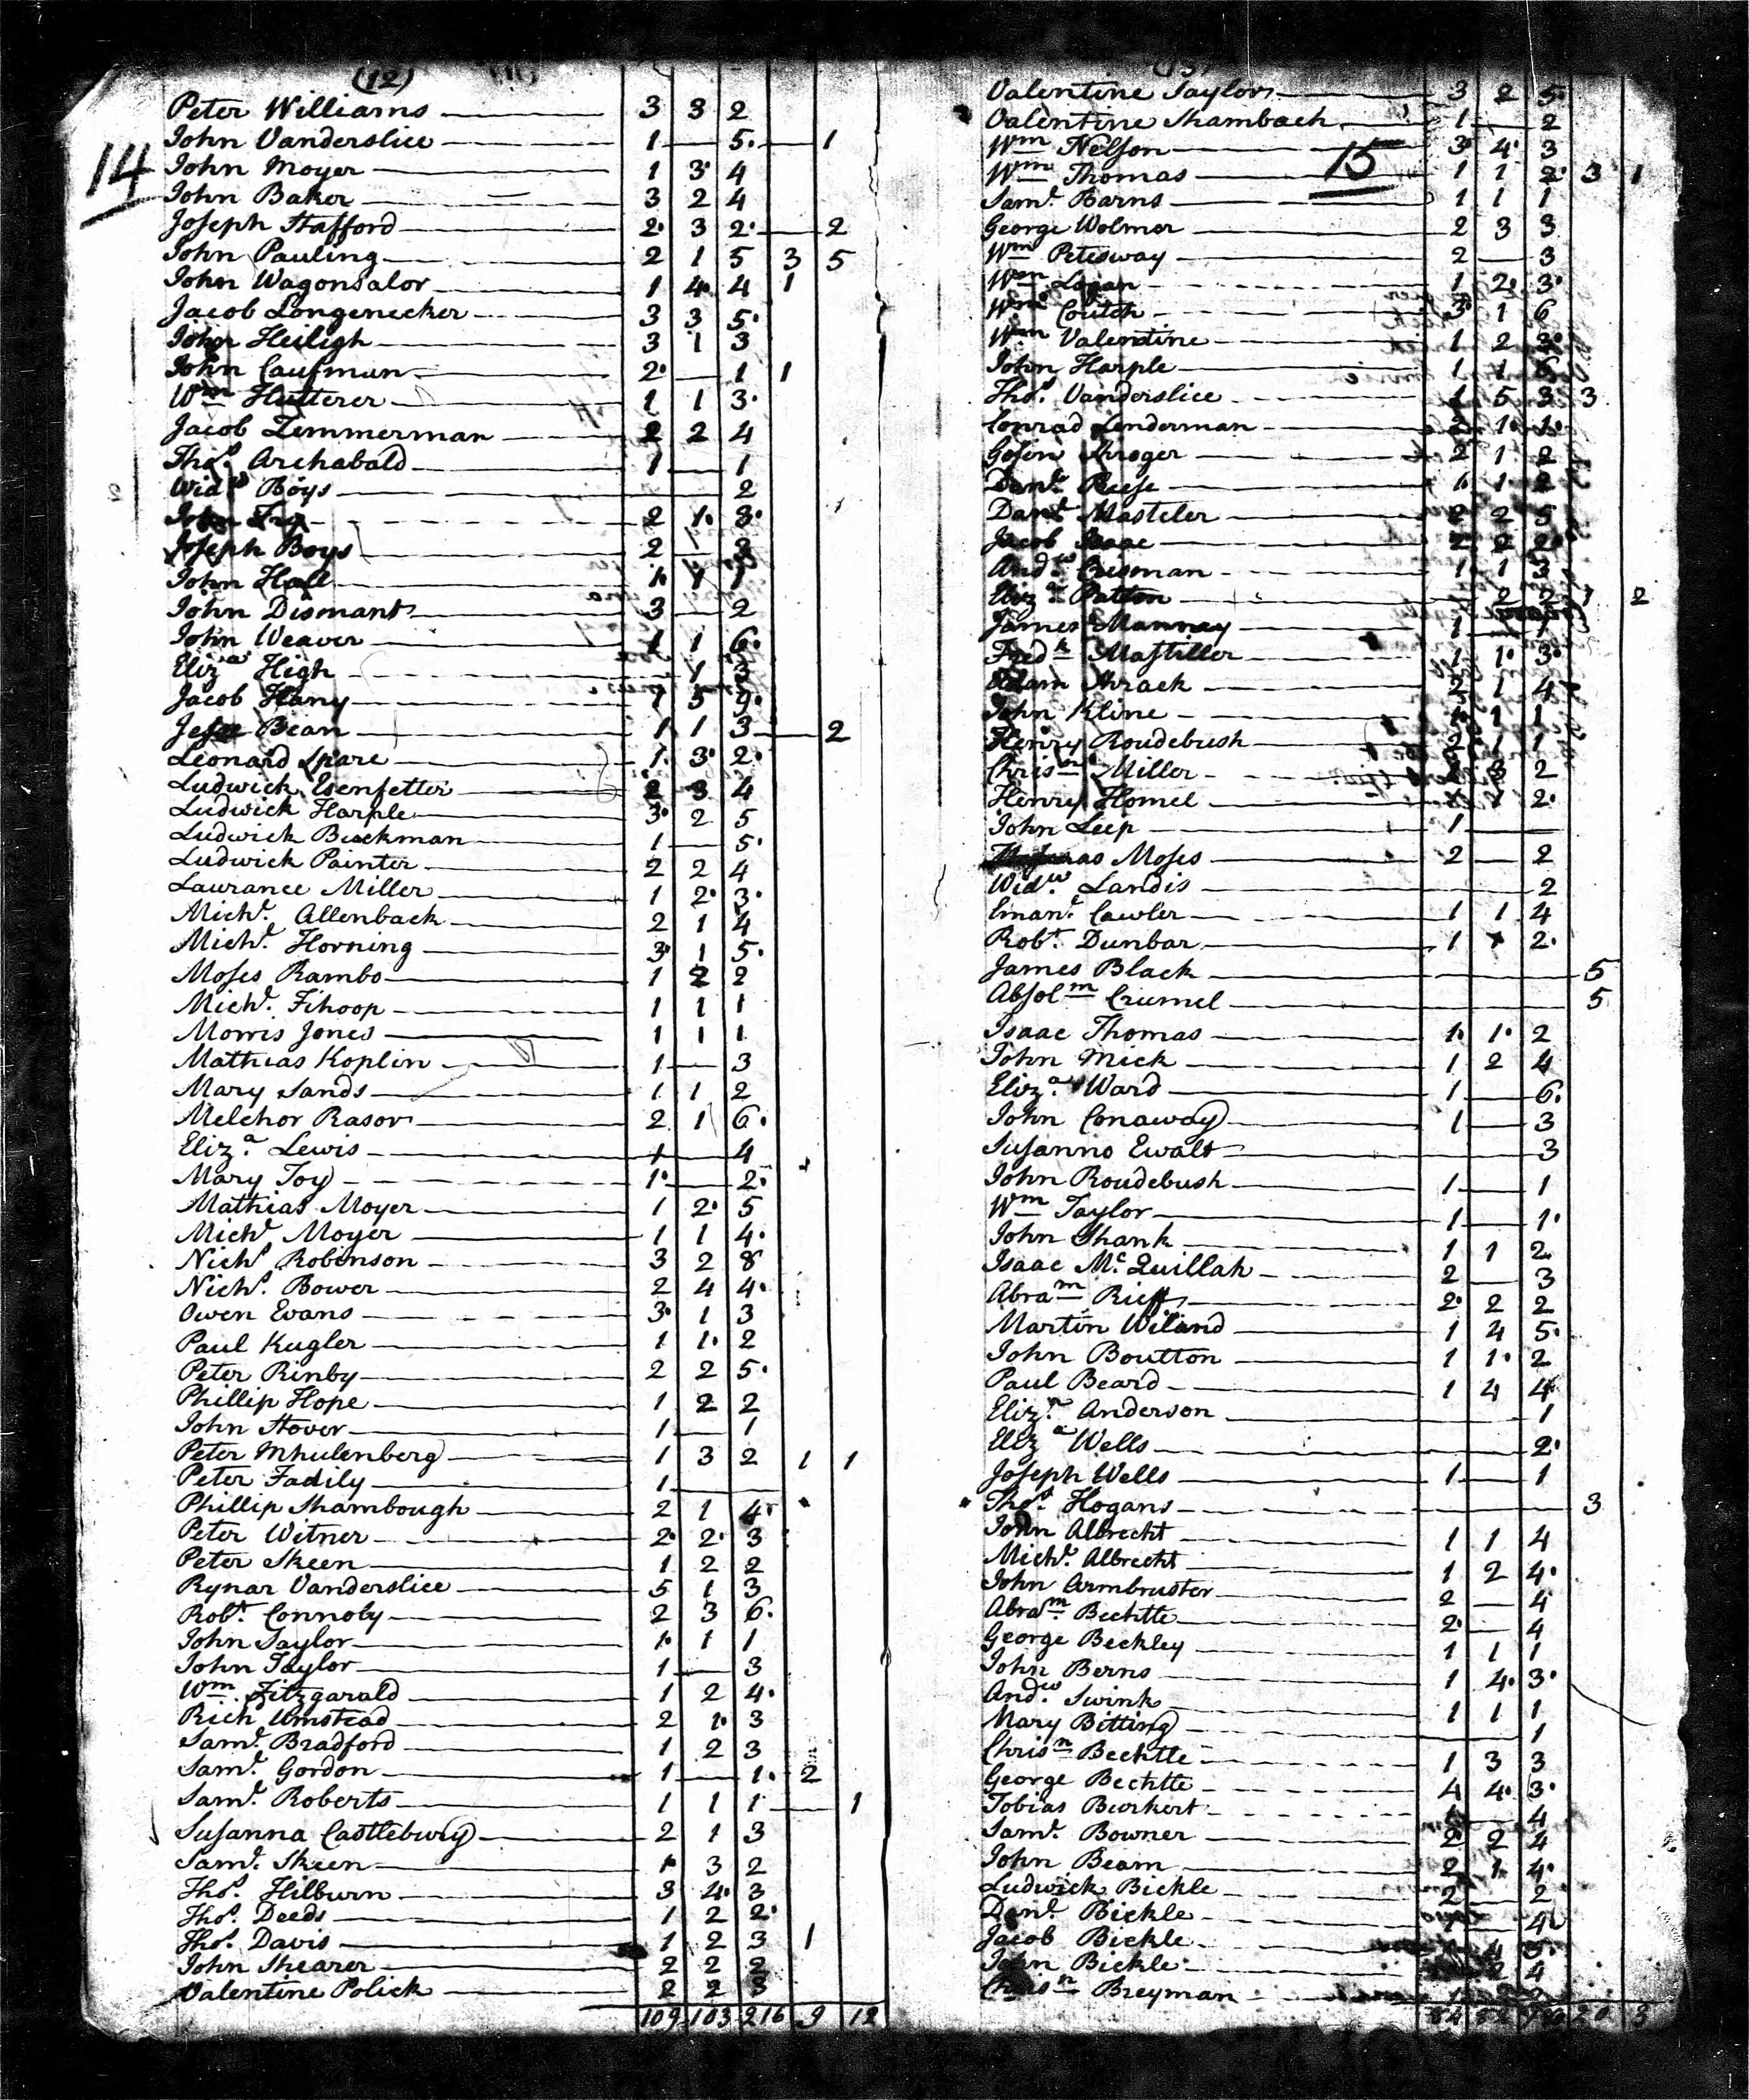 (12)
14
Peter Williams 3 3 2
John Vanderslice 1 — 5 — 1
John Moyer 1 3 4
John Baker 3 2 4
Joseph Stafford 2 3 2 — 2
John Pauling 2 1 5 3 5
John Wagonsalor 1 4 4 1
Jacob Longenecker 3 3 5
John Heiligh 3 1 3
John Caufman 2 — 1 1
Wm Hutterer 1 1 3
Jacob Zimmerman 2 2 4
Thos. Archabald 1 — 1
Widw Boys — — 2
John Fry 2 1 3
Joseph Boys 2 —
John Hall 1 1 1
John Dismant 3 — 2
John Weaver 1 1 6
Eliza High — 1 3
Jacob Hany 1 5 9
Jesse Bean 1 1 3 — 2
Leonard Spare 1 3 2
Ludwick Esenfetter 2 3 4
Ludwick Harple 3 2 5
Ludwick Buckman 1 — 5
Ludwick Painter 2 2 4
Laurance Miller 1 2 3
Michl. Allenback 2 1 4
Michl. Horning 3 1 5
Moses Rambo 1 2 2
Michl. Fihoop 1 1 1
Morris Jones 1 1 1
Mathias Koplin 1 — 3
Mary Sands 1 1 2
Melchor Rasor 2 1 6
Eliza. Lewis 1 — 4
Mary Toy 1 — 2
Mathias Moyer 1 2 5
Michl Moyer 1 1 4
Nichs Robinson 3 2 8
Nichs. Bower 2 4 4
Owen Evans 3 1 3
Paul Kugler 1 1 2
Peter Rinby 2 2 5
Phillip Hope 1 2 2
John Stover 1 — 1
Peter Mhulenberg 1 3 2 1 1
Peter Fadily 1 —
Phillip Shambough 2 1 4
Peter Witner 2 2 3
Peter Skeen 1 2 2
Rynar Vanderslice 5 1 3
Robt. Connoly 2 3 6
John Saylor 1 1 1
John Taylor 1 — 3
Wm. Fitzgarald 1 2 4
Richd Umstead 2 1 3
Saml. Bradford 1 2 3
Saml. Gordon 1 — 1 2
Saml. Roberts 1 1 1 — 1
Susanna Castlebury 2 1 3
Saml. Skeen 1 3 2
Thos. Hilburn 3 4 3
Thos. Deeds 1 2 2
Thos. Davis 1 2 3 1
John Shearer 2 2 2
Valentine Polick 2 2 3
109 103 216 9 12
Valentine Saylor 3 2 5
Valentine Shambach 1 — 2
Wm Nelson 3 4 3
15
Wm Thomas 1 1 2 3 1
Saml. Barns 1 1 1
George Wolmer 2 3 3
Wm Petesway 2 — 3
Wm Logan 1 2 3
Wm Coutch 3 1 6
Wm Valentine 1 2 3
John Harple 1 1 6
Thos. Vanderslice 1 5 3 3
Conrad Lenderman 2 1 1
Gosin Shroger 2 1 2
Danl. Reese 1 1 2
Danl Masteler 2 2 5
Jacob Isaac 2 2 2
Andw Crisman 1 1 3
Eliza Patton — 2 2 1 2
James Mannay 1 — 1
Fredk Mastiller 1 1 3
Adam Shrack 2 1 4
John Kline 1 1 1
Henry Roudebush 2 1 1
Chrisn Miller 3 2
Henry Homel 1 1 2
John Leep 1 —
Moses 2 — 2
Widw. Landis — 2
Emanl. Cawler 1 1 4
Robt. Dunbar 1 1 2
James Black — 5
Absolm Crumel — 5
Isaac Thomas 1 1 2
John Mick 1 2 4
Eliza Ward 1 — 6
John Conaway 1 — 3
Susanno Ewalt — 3
John Roudebush 1 — 1
Wm Taylor 1 — 1
John Shank 1 1 2
Isaac Mc. Quillah 2 — 3
Abram Rieff 2 2 2
Martin Wiland 1 4 5
John Boutton 1 1 2
Paul Beard 1 4 4
Eliza. Anderson — 1
Eliza Wells — 2
Joseph Wells 1 — 1
Thos. Hogans — 3
John Albrecht 1 1 4
Michl. Albrecht 1 2 4
John Armbruster 2 — 4
Abram Bechtle 2 — 4
George Beckley 1 1 1
John Berns 1 4 3
Andw. Swink 1 1 1
Mary Bitting — 1
Chrisn Bechtle 1 3 3
George Bechtle 4 4 3
Tobias Burkert 1 — 4
Saml. Bowner 2 2 4
John Beam 2 1 4
Ludwick Bickle 2 — 2
Danl. Bickle 1 — 4
Jacob Bickle
John Bickle 2 4
Chrisn Breyman